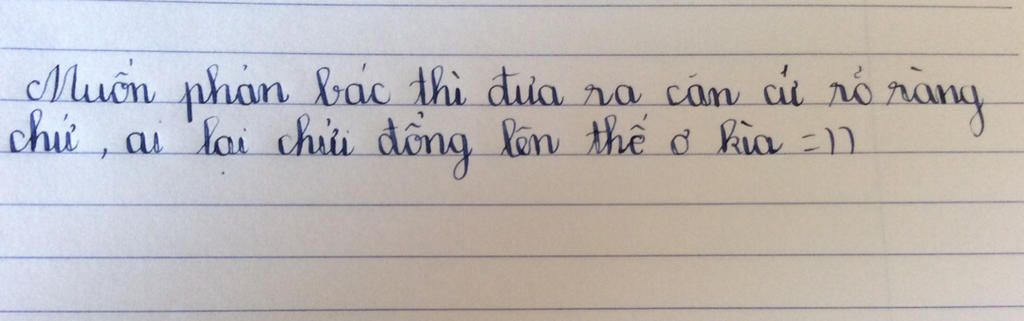 Muốn phản bác thì đưa ra căn cứ rổ ràng
chứ, ai lại chửi đổng lên thế ơ kìa =))